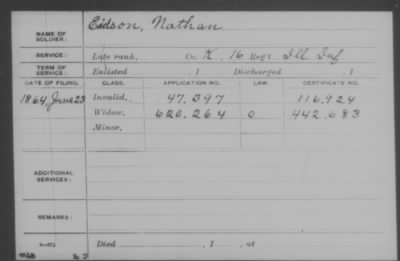 NAME OF SOLDIER: Eidson, Nathan
SERVICE: Late rank, Co. K, 16 Reg't Ill Inf
TERM OF SERVICE: Enlisted , 1 Discharged , 1
DATE OF FILING. CLASS. APPLICATION NO. LAW. CERTIFICATE NO.
1864, June 23 Invalid, 47.397 116.924
Widow, 620.264 O 442.683
Minor,
ADDITIONAL SERVICES:
REMARKS:
Died , 1 , at